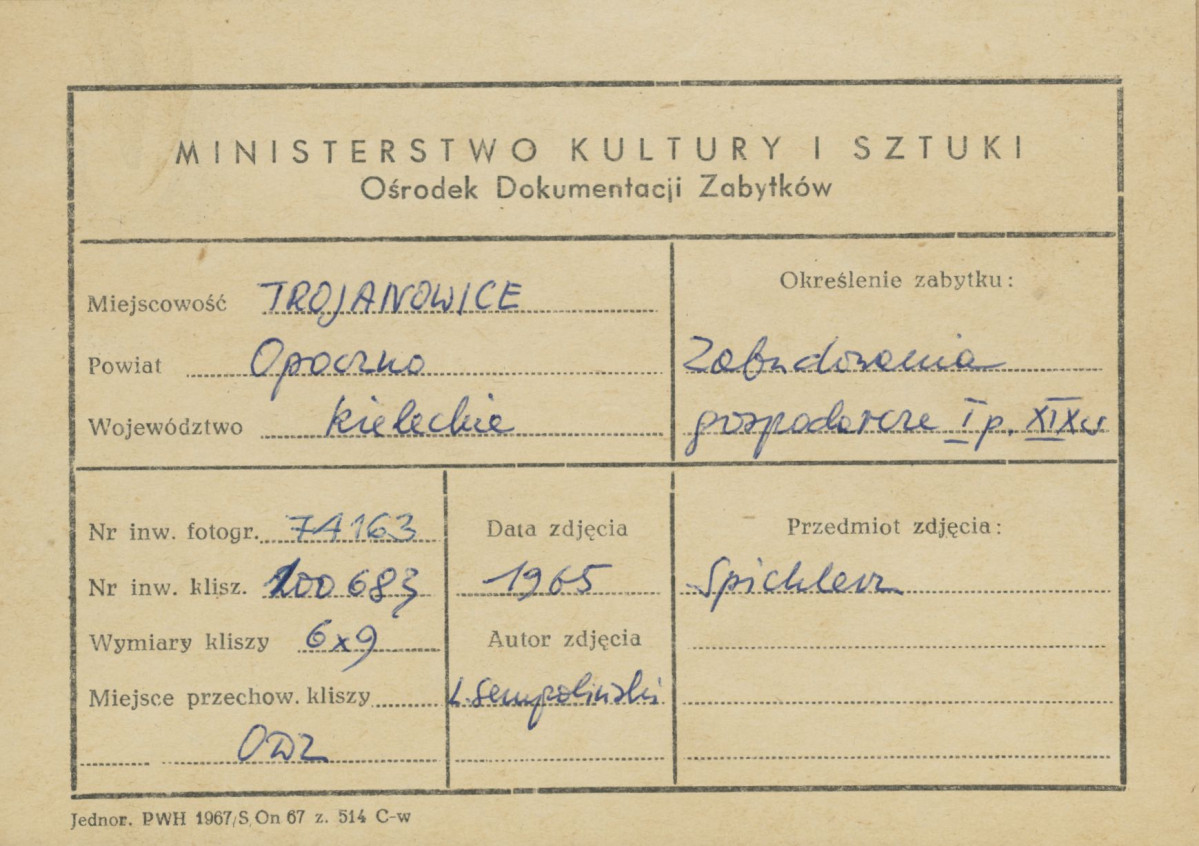 MINISTERSTWO KULTURY I SZTUKI
Ośrodek Dokumentacji Zabytków
Miejscowość TROJANOWICE
Powiat Opoczno
Województwo kieleckie
Określenie zabytku:
Zabudowania
gospodarcze I p. XIX w
Nr inw. fotogr. 74163
Nr inw. klisz. 100683
Wymiary kliszy 6x9
Miejsce przechow. kliszy
ODZ
Data zdjęcia
1965
Autor zdjęcia
L. Sempoliński
Przedmiot zdjęcia:
Spichlerz
Jednor. PWH 1967/S On 67 z. 514 C-w